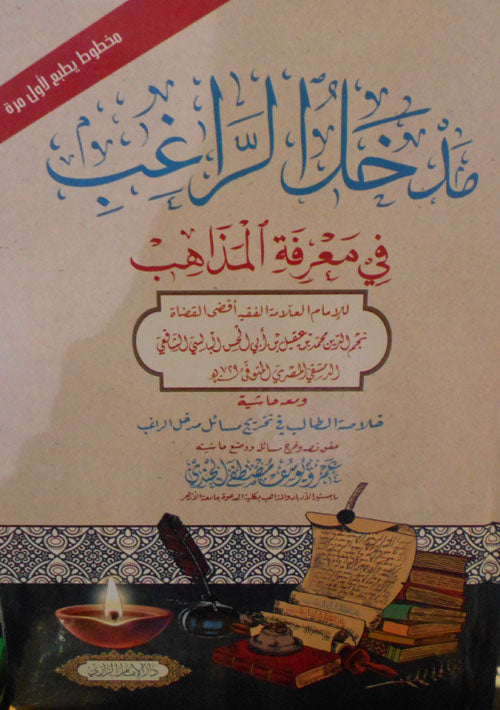 مخطوط يطبع لأول مرة
مَدْخَلُ الرَّاغِبِ
فِي مَعْرِفَةِ الْمَذَاهِبْ
للإمام العلامة الفقيه أقضى القضاة
نجم الدين محمد بن عقيل بن أبي الحسن البالسي الشافعي
الدمشقي المصري المتوفى ٧٢٩ هـ
ومعه حاشية
خلاصة الطالب في تخريج مسائل مدخل الراغب
حقق نصه وخرج مسائله ووضع حاشيته
عمرو يوسف مصطفى الجندي
ماجستير الأديان والمذاهب بكلية الدعوة جامعة الأزهر
دار الإمام الرازي